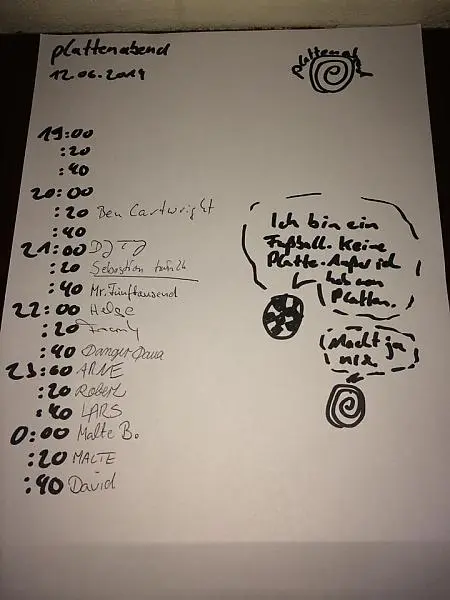 plattenabend
12.06.2019
plattenabend
19:00
:20
:40
20:00
:20 Ben Cartwright
:40
21:00 DJ TJ
:20 Sebastian
:40 Mr. Fünftausend
22:00 Helge
:20
:40 Danger Dava
23:00 ARNE
:20 Robert
:40 LARS
0:00 Malte B.
:20 MALTE
:40 David
Ich bin ein
Fußball. Keine
Platte. Außer ich
hab nen
Platten.
Macht ja
nix.